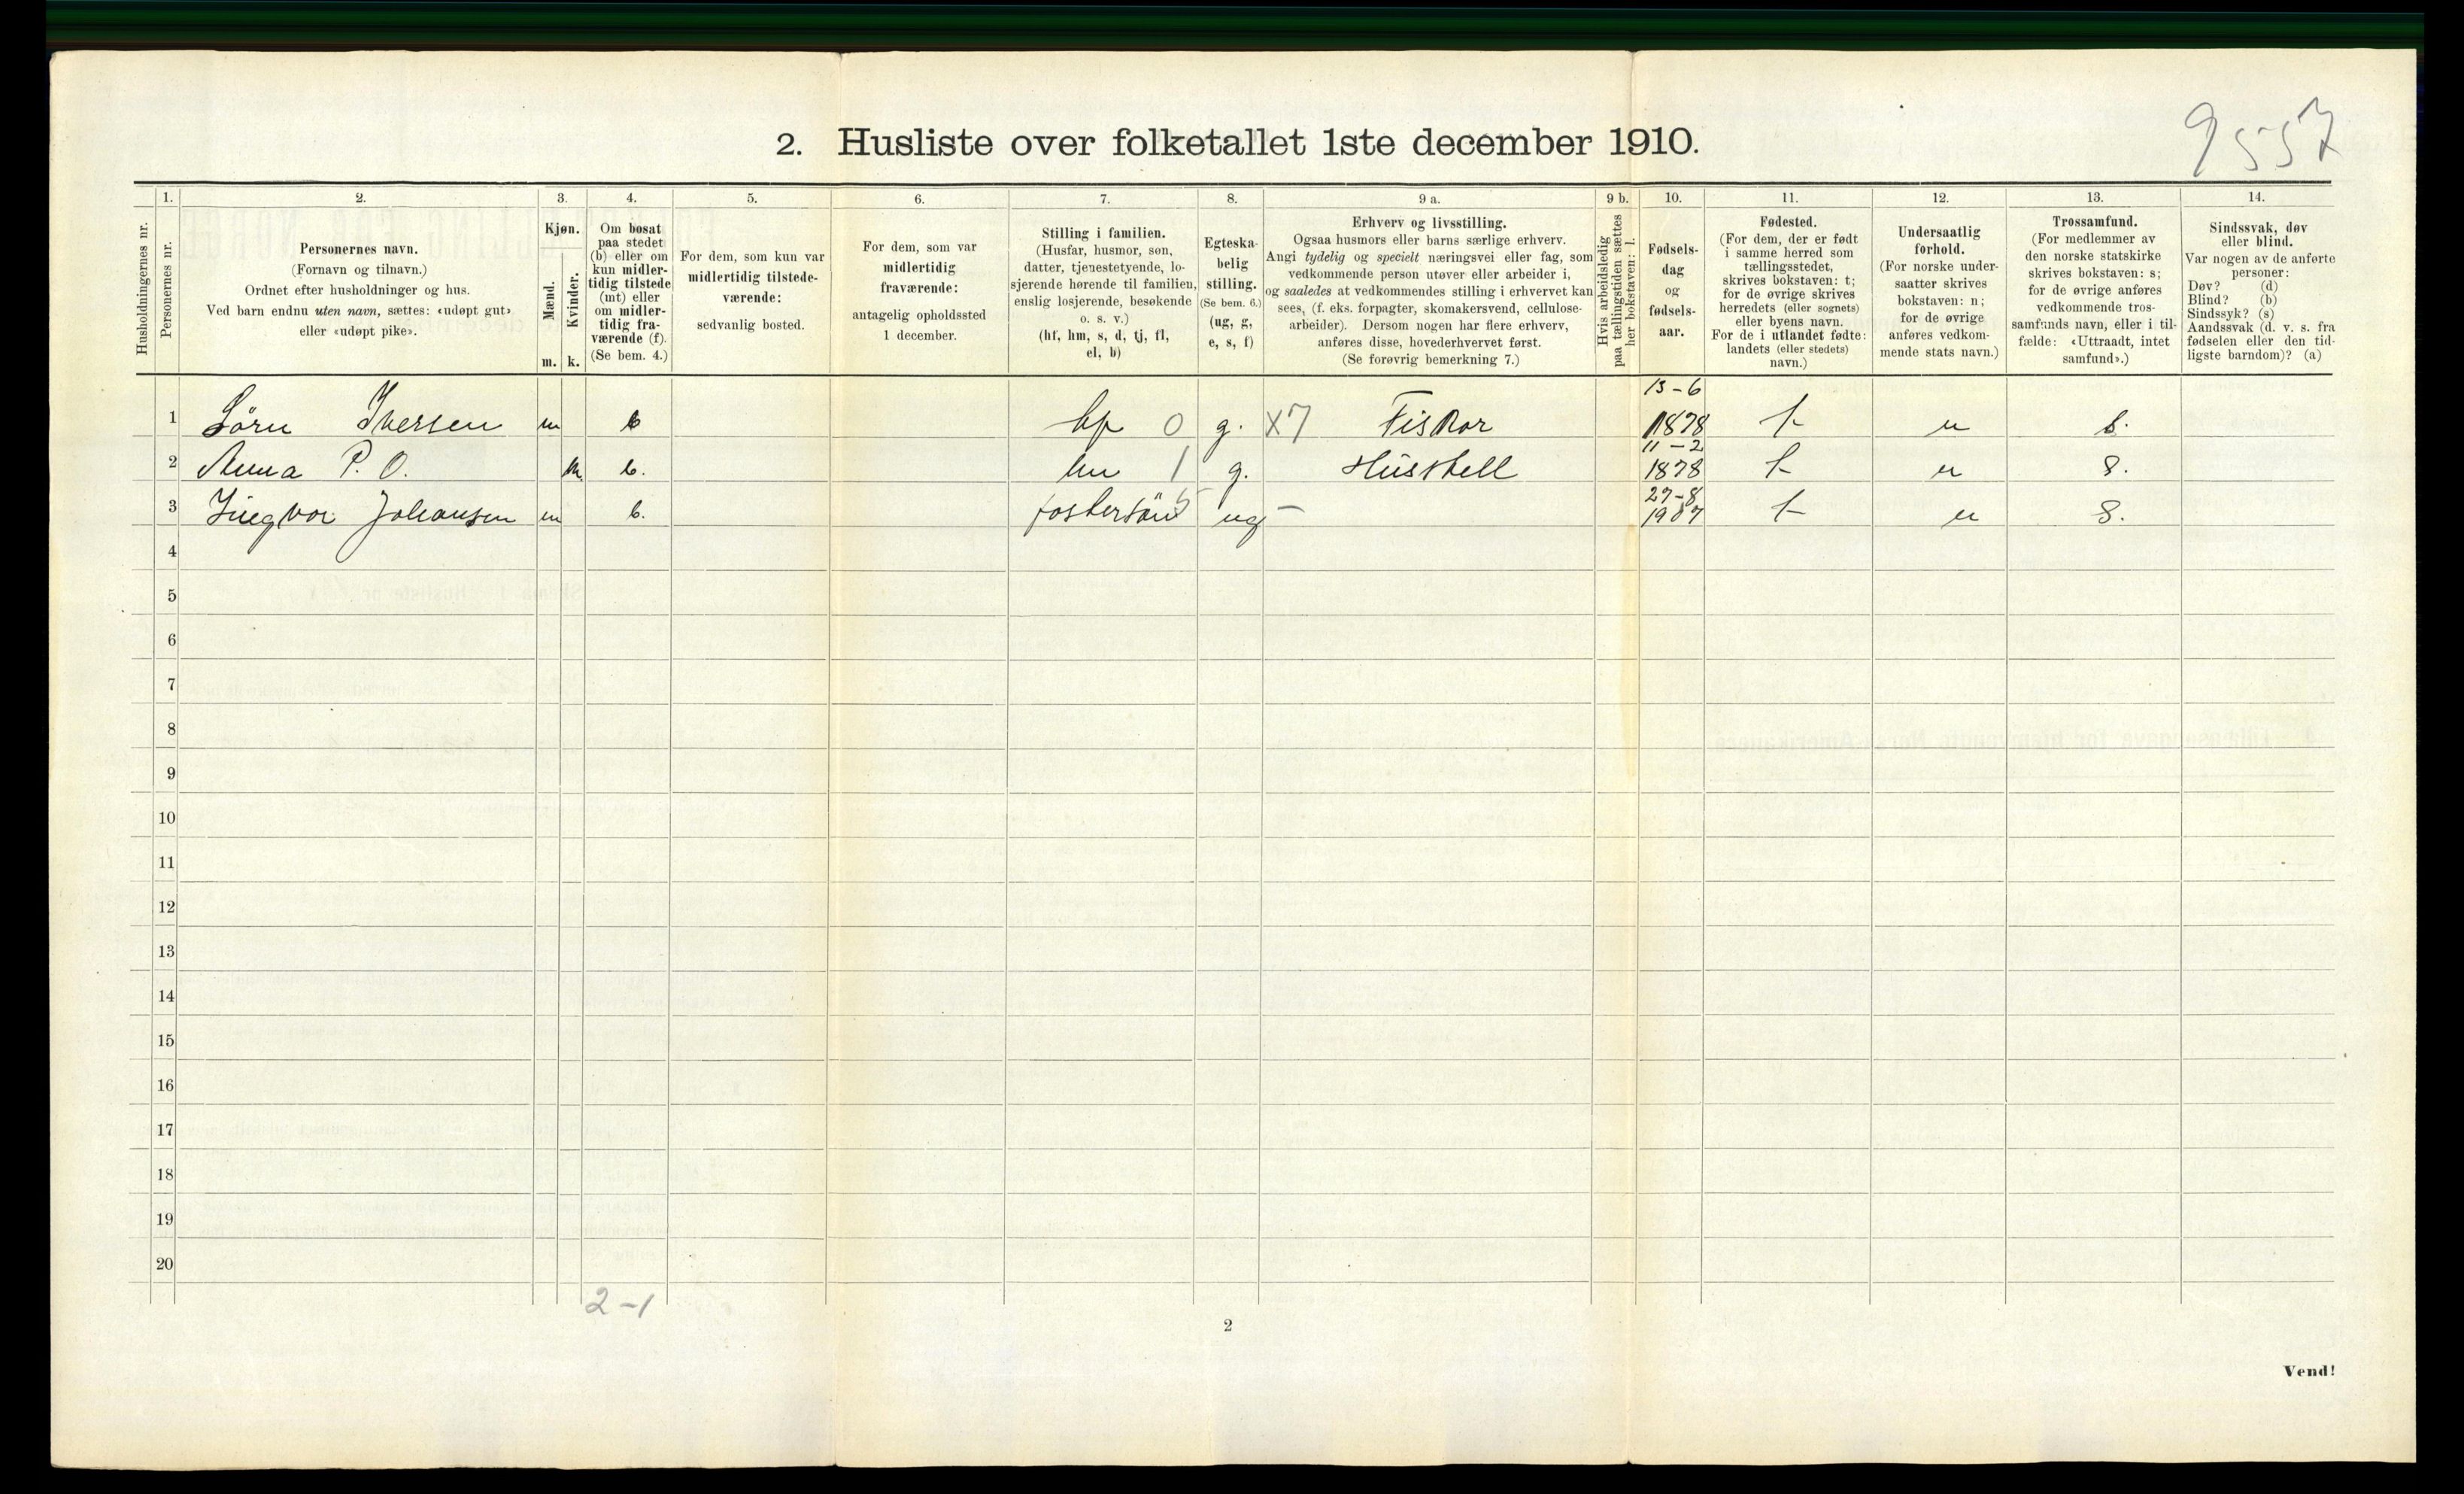 2. Husliste over folketallet 1ste december 1910.
9557
Husholdningernes nr.
1.
Personernes nr.
2.
Personernes navn.
(Fornavn og tilnavn.)
Ordnet efter husholdninger og hus.
Ved barn endnu uten navn, sættes: «udøpt gut»
eller «udøpt pike».
3.
Kjøn.
Mænd.
Kvinder.
m. k.
4.
Om bosat
paa stedet
(b) eller om
kun midler-
tidig tilstede
(mt) eller
om midler-
tidig fra-
værende (f).
(Se bem. 4.)
5.
For dem, som kun var
midlertidig tilstede-
værende:
sedvanlig bosted.
6.
For dem, som var
midlertidig
fraværende:
antagelig opholdssted
1 december.
7.
Stilling i familien.
(Husfar, husmor, søn,
datter, tjenestetyende, lo-
sjerende hørende til familien,
enslig losjerende, besøkende
o. s. v.)
(hf, hm, s, d, tj, fl,
el, b)
8.
Egteska-
belig
stilling.
(Se bem. 6.)
(ug, g,
e, s, f)
9 a.
Erhverv og livsstilling.
Ogsaa husmors eller barns særlige erhverv.
Angi tydelig og specielt næringsvei eller fag, som
vedkommende person utøver eller arbeider i,
og saaledes at vedkommendes stilling i erhvervet kan
sees, (f. eks. forpagter, skomakersvend, cellulose-
arbeider). Dersom nogen har flere erhverv,
anføres disse, hovederhvervet først.
(Se forøvrig bemerkning 7.)
9 b.
Hvis arbeidsledig
paa tællingstiden sættes
her bokstaven: l.
10.
Fødsels-
dag
og
fødsels-
aar.
11.
Fødested.
(For dem, der er født
i samme herred som
tællingsstedet,
skrives bokstaven: t;
for de øvrige skrives
herredets (eller sognets)
eller byens navn.
For de i utlandet fødte:
landets (eller stedets)
navn.)
12.
Undersaatlig
forhold.
(For norske under-
saatter skrives
bokstaven: n;
for de øvrige
anføres vedkom-
mende stats navn.)
13.
Trossamfund.
(For medlemmer av
den norske statskirke
skrives bokstaven: s;
for de øvrige anføres
vedkommende tros-
samfunds navn, eller i til-
fælde: «Uttraadt, intet
samfund».)
14.
Sindssvak, døv
eller blind.
Var nogen av de anførte
personer:
Døv? (d)
Blind? (b)
Sindssyk? (s)
Aandssvak (d. v. s. fra
fødselen eller den tid-
ligste barndom)? (a)
1 Sörn Iversen m b hf 0 g. x7 Fisker 13-6 1878 t n s.
2 Anna P. O. k b. hm 1 g. Husstell 11-2 1878 t n s.
3 Ingvor Johansen m b. fostersön 5 ug - 27-8 1907 t n s.
4
5
6
7
8
9
10
11
12
13
14
15
16
17
18
19
20
2-1
2
Vend!